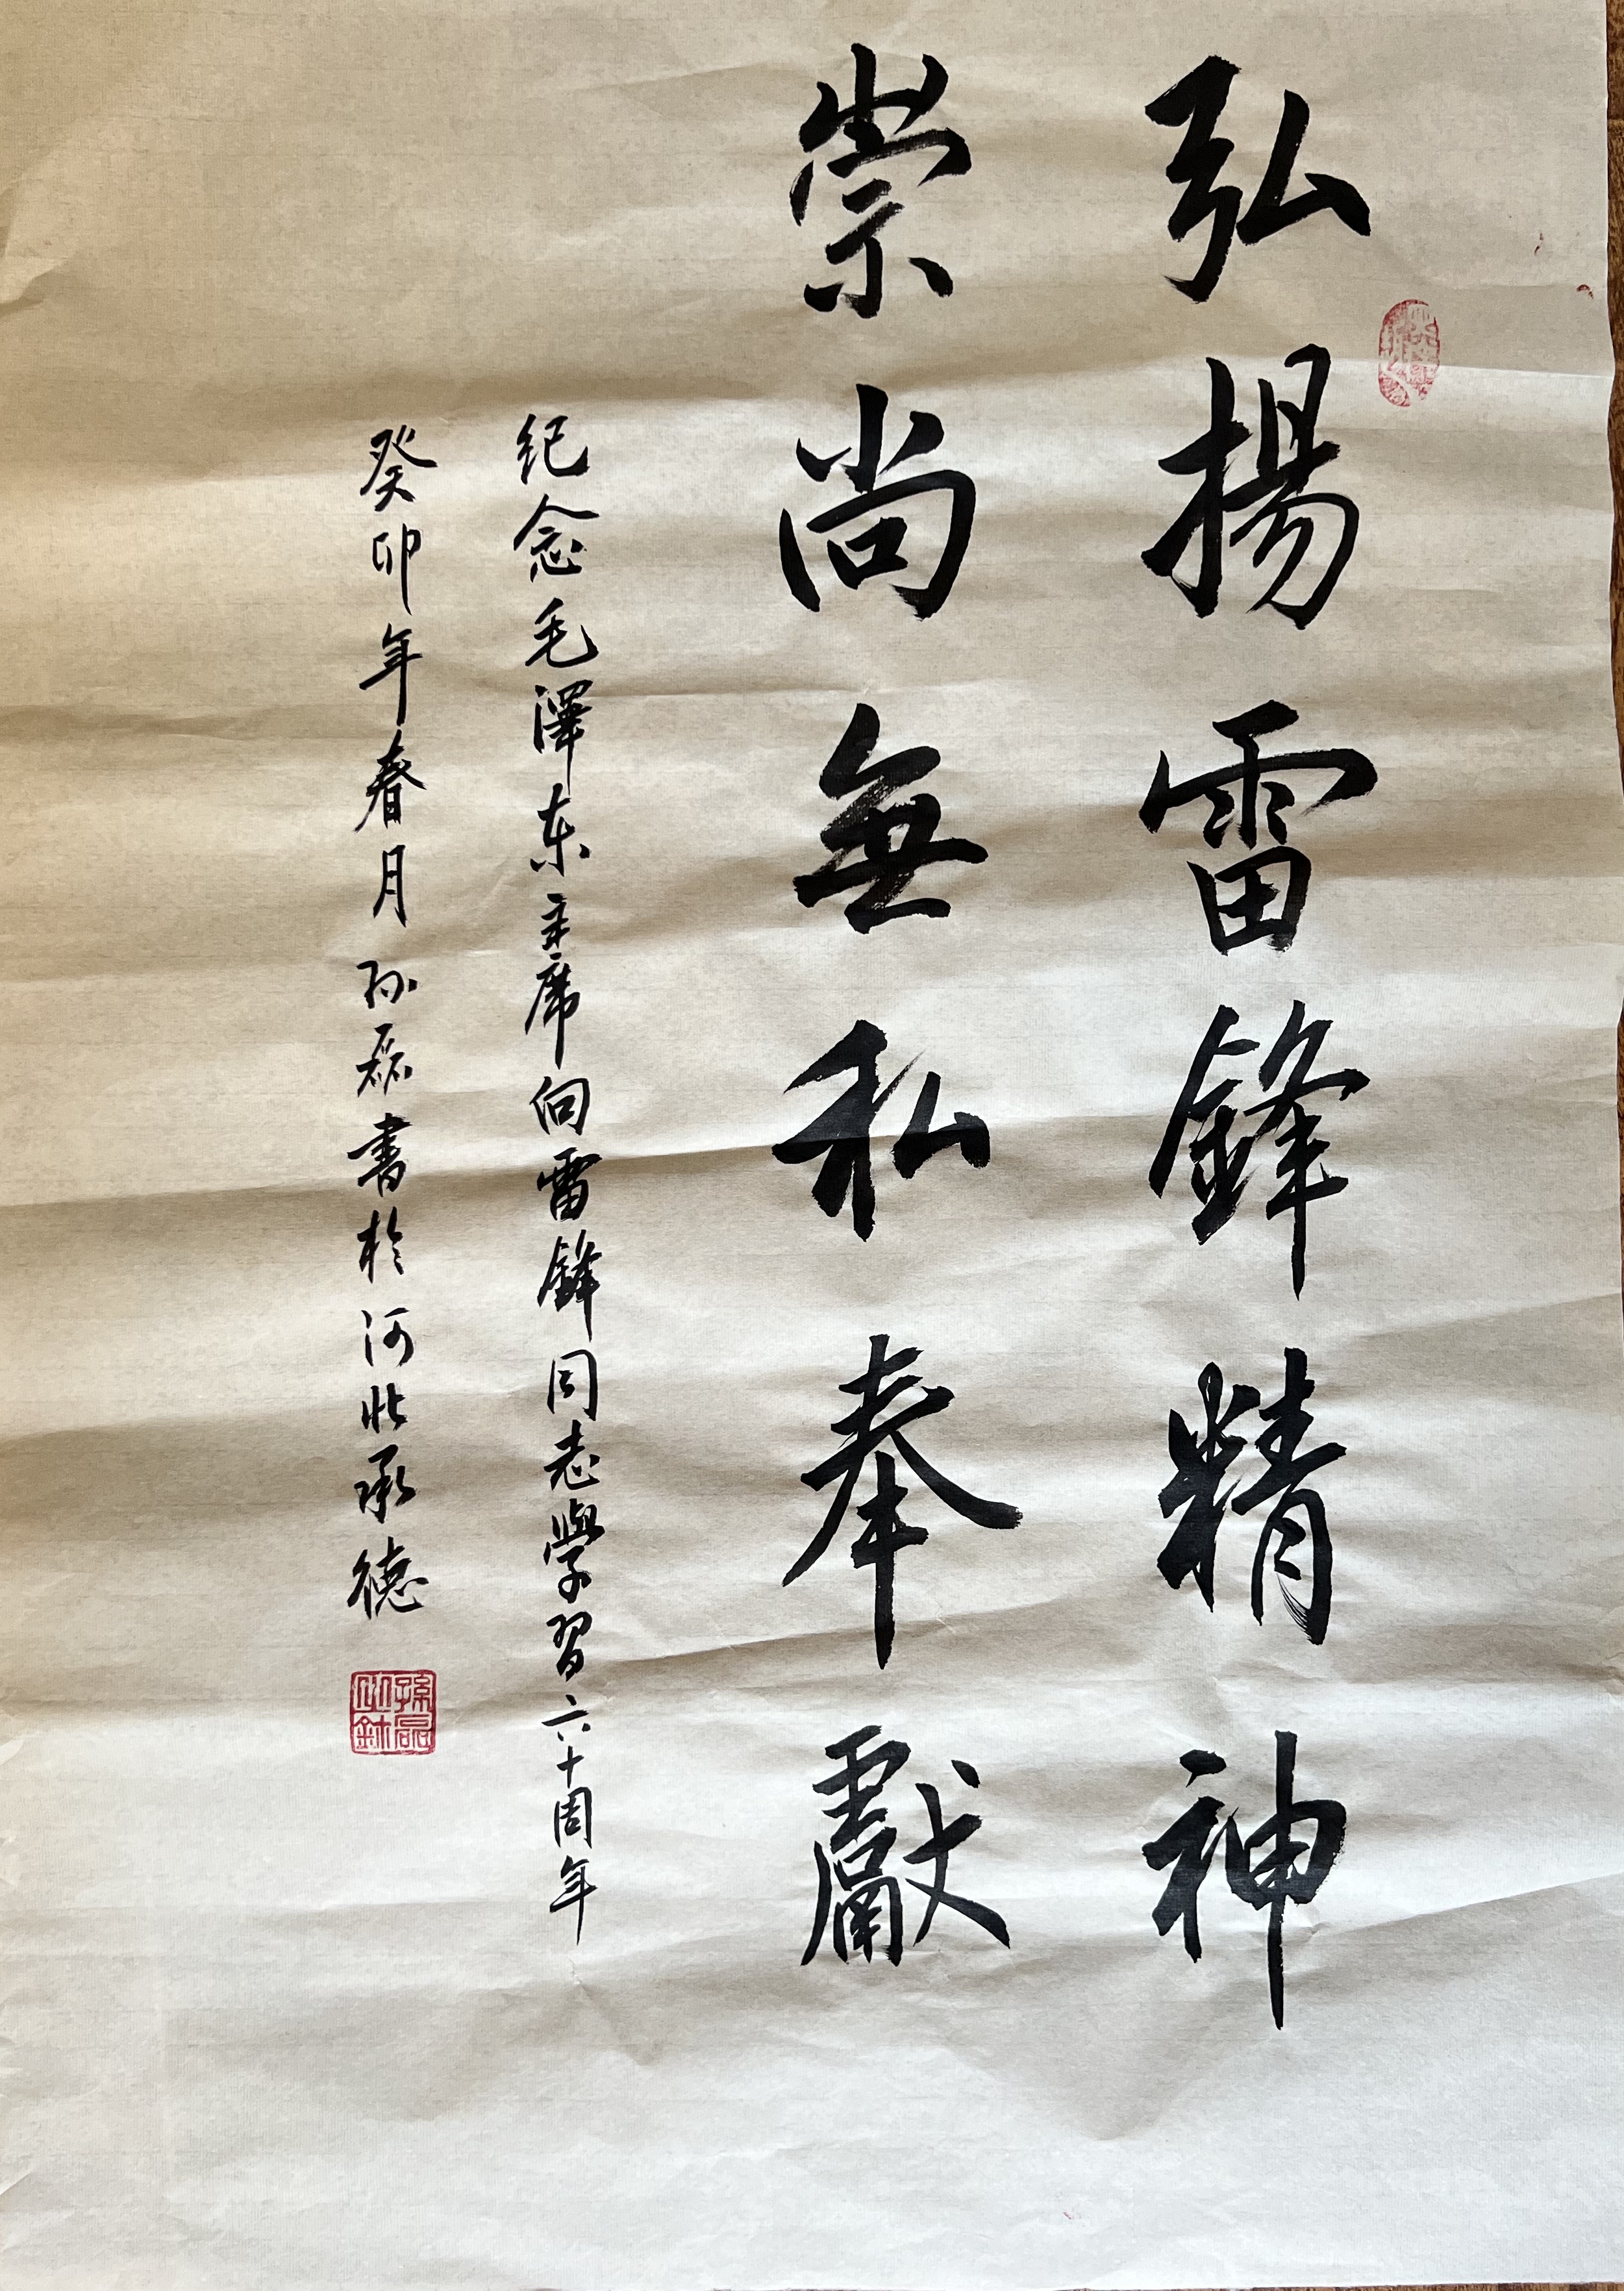 弘揚雷鋒精神
崇尚無私奉獻
纪念毛澤东主席向雷鋒同志學習六十周年
癸卯年春月孙磊書於河北承德
孫磊之鉢